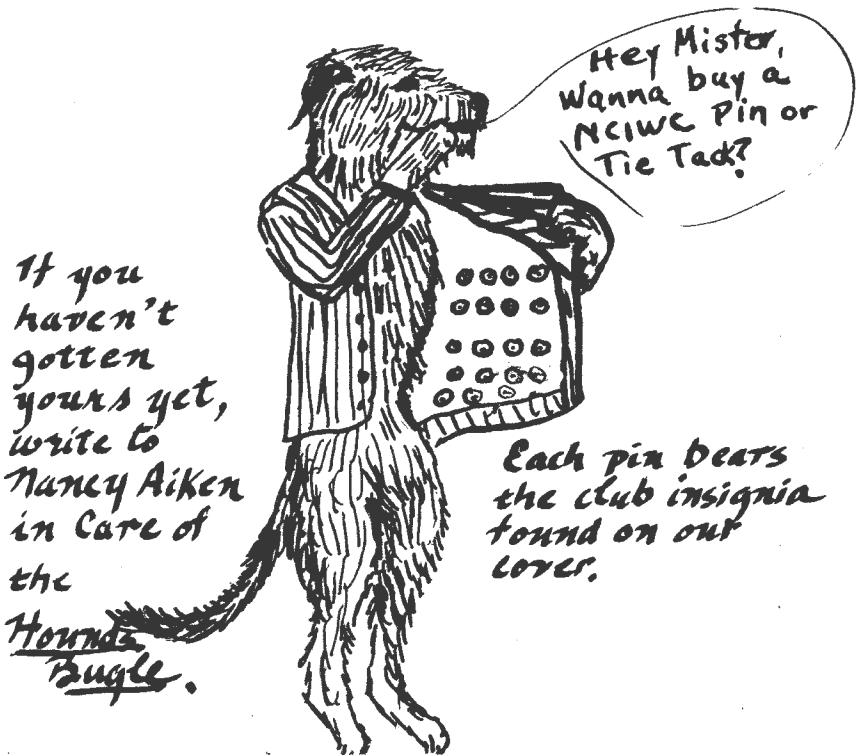 Hey Mister,
Wanna buy a
NCIWC Pin or
Tie Tack?
If you
haven't
gotten
yours yet,
write to
Nancy Aiken
in Care of
the
Hounds
Bugle.
Each pin bears
the club insignia
found on our
cover.